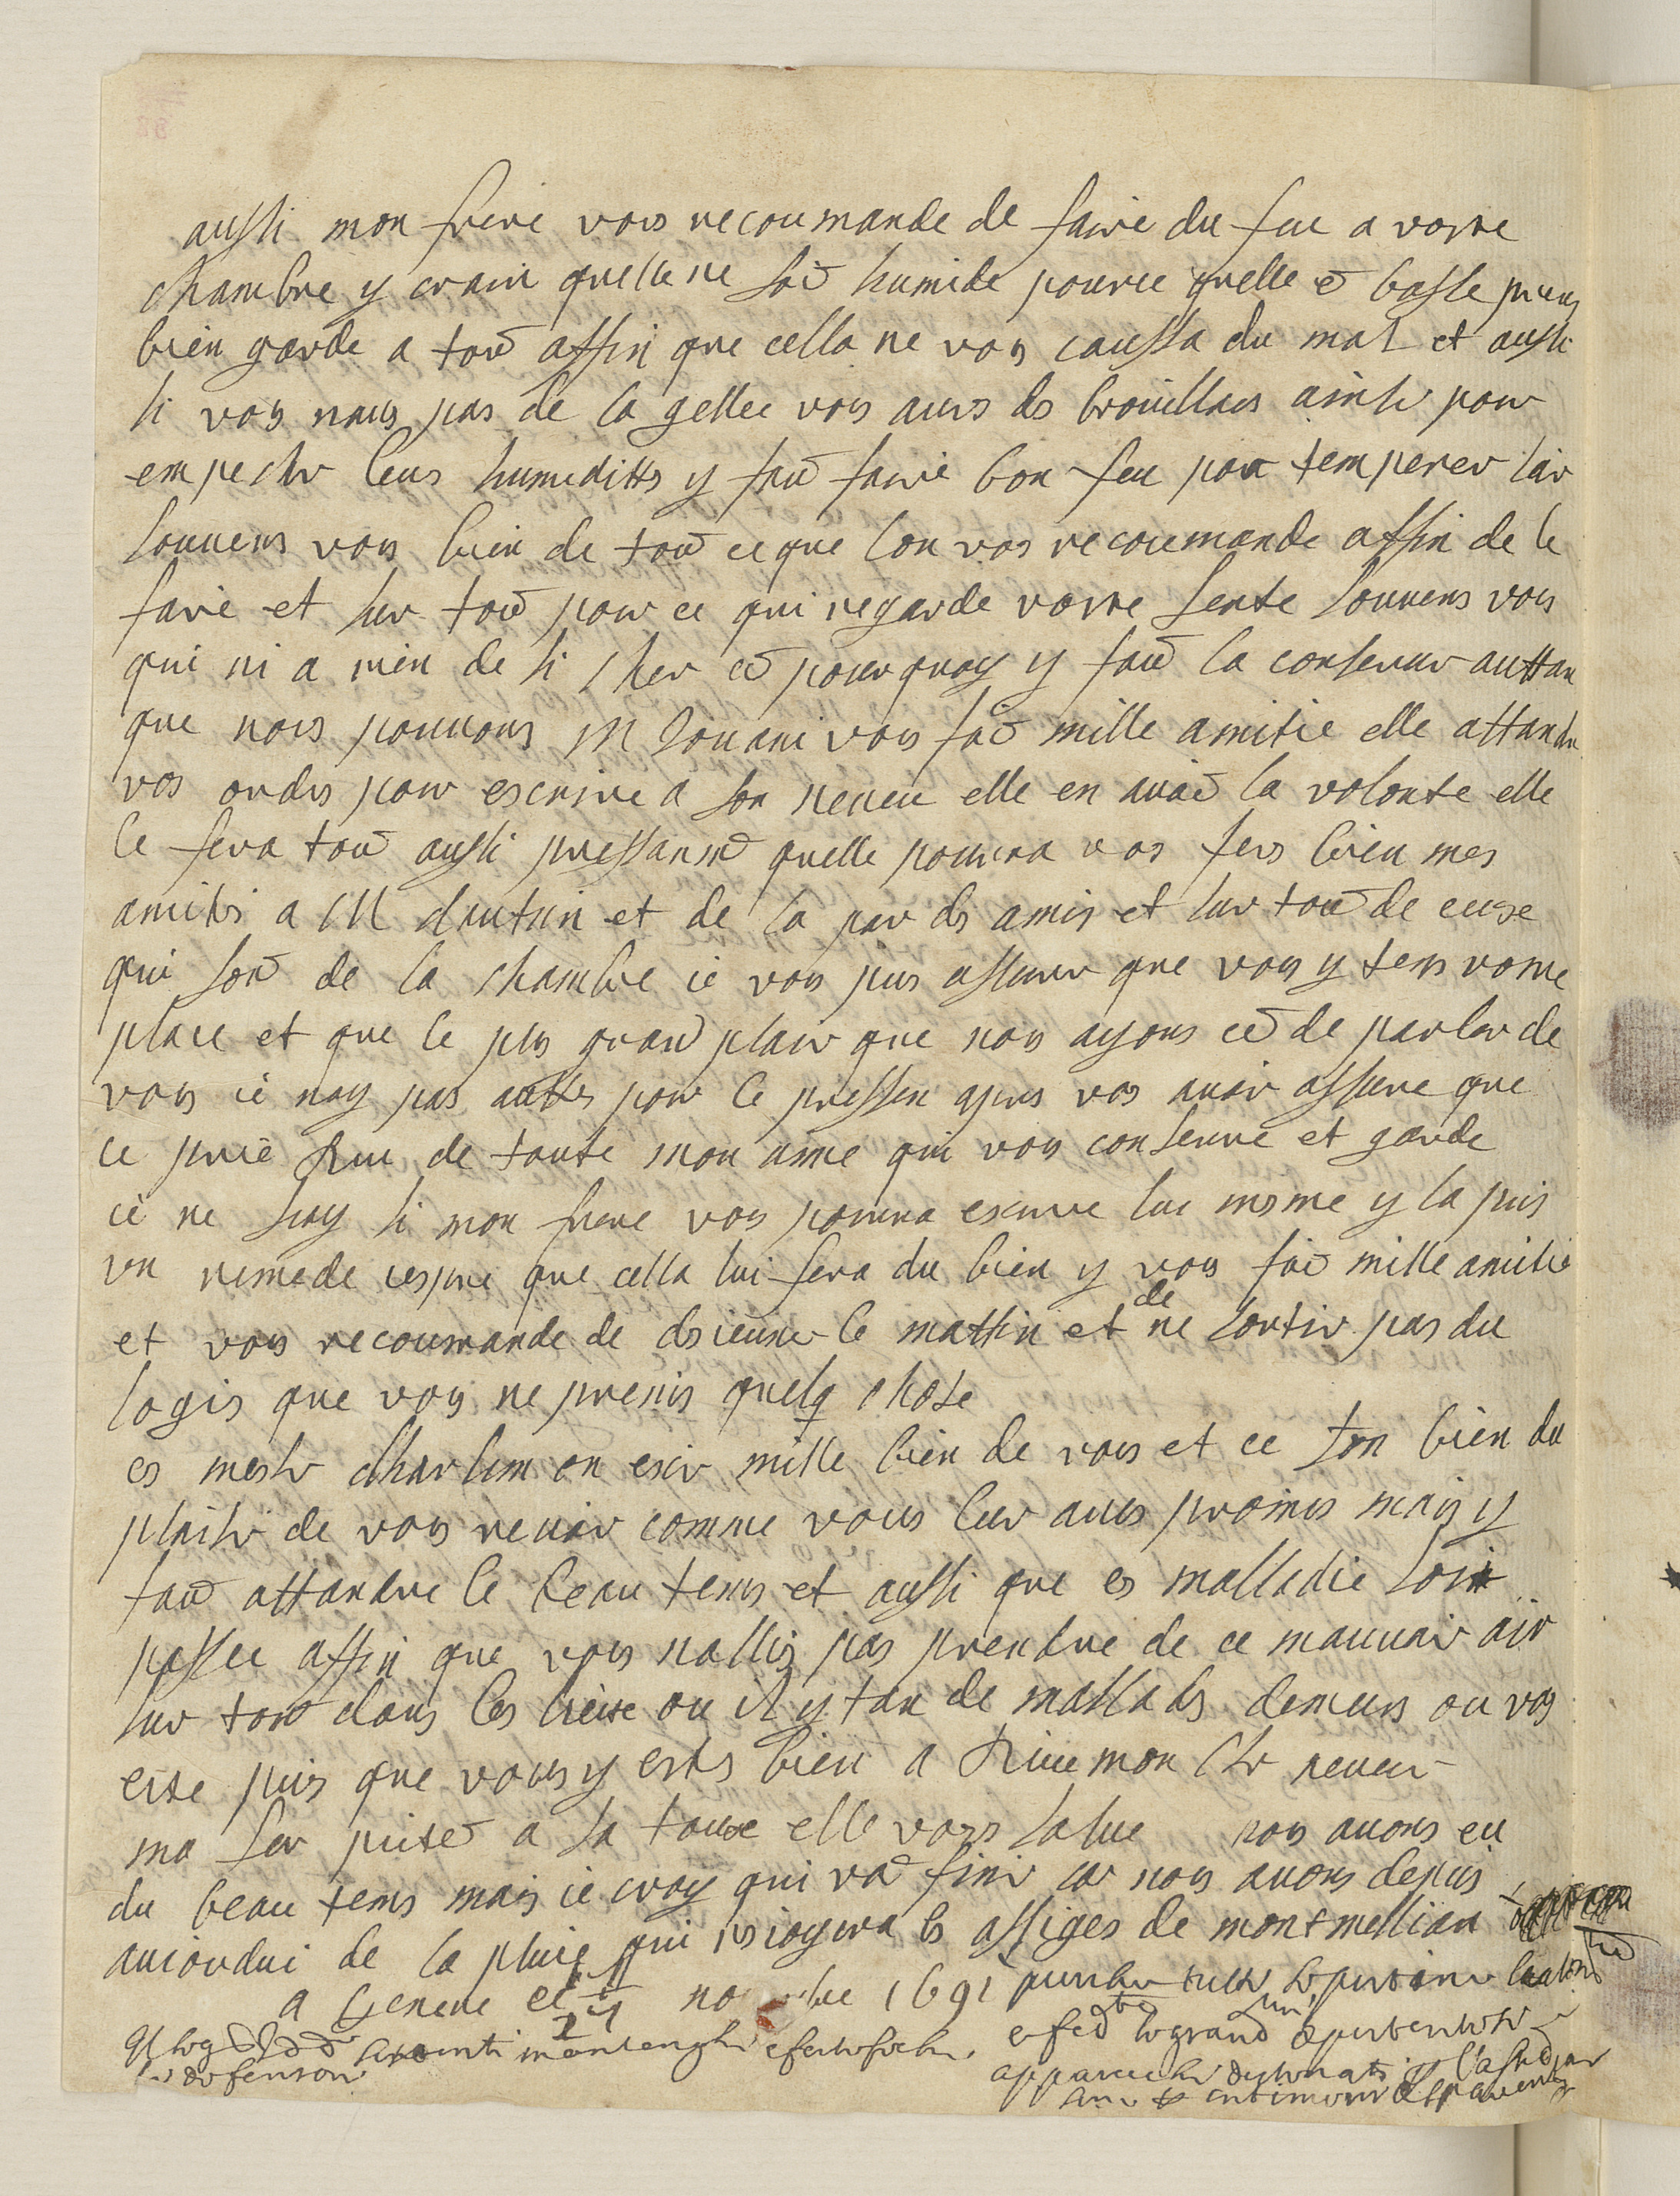 aussi mon frere vous recoumande de faire du feu a vostre
chambre y craint quelle ne soit humide pource quelle e basse prens
bien garde a tout affin que cella ne vous caussa du mal et aussi
si vous naus pas de la gellee vous aurs ds brouillars ainsi pour
empecher leus humeditts y faut faire bon feu pour temperer lair
souuens vous bien de tout ce que lon vos recoumande affin de le
faire et sur tout pour ce qui regarde vostre sente souuens vous
qui ni a rien de si cher ce pourquoy y faut la conseruer auttan
que nous pouuons M vous fait mille amitie elle attandu
vos ordrs pour escrire a son neueu elle en auait la volonte elle
le fera tout aussi pressanmt quelle pourra vos fers bien mes
amitis a M dautun et de la par ds amis et sur tout de ceuxe
qui sont de la chambre ie vous puis assurer que vous y tens vostre
place et que le plus grand plaisir que nous ayons ce de parler de
vous ie nay pas autts pour le pressen apres vos auoir assure que
ie prie Dieu de toute mon ame qui vous conserue et garde
ie ne say si mon frere vous pourra escrire lui mesme y la pris
vn remede iespre que cella lui fera du bien y vous fait mille amitie
et vous recoumande de desieuner le mattin et de ne sortir pas du
logis que vous ne prenis quelq chose
es mesr on escr mille bien de vous et ce fon bien du
plaisir de vous reuoir comme vous leur aues promis mais y
faut attandre le beau tems et aussi que es malladie soint
passee affin que vous nallis pas prendre de ce mauuair air
sur tout dans les lieuxe ou il y tan de mallads demeurs ou vos
este puis que vous y ests bien a Dieu mon cher neueu
ma ser a la touxe elle vous salue nous auons eu
du beau tems mais ie croy qui va finir car nous auons depuis
auiordui de la pluie qui resioyra ls assiges de montmellian
a Geneue ce nouembre 1691
le grand